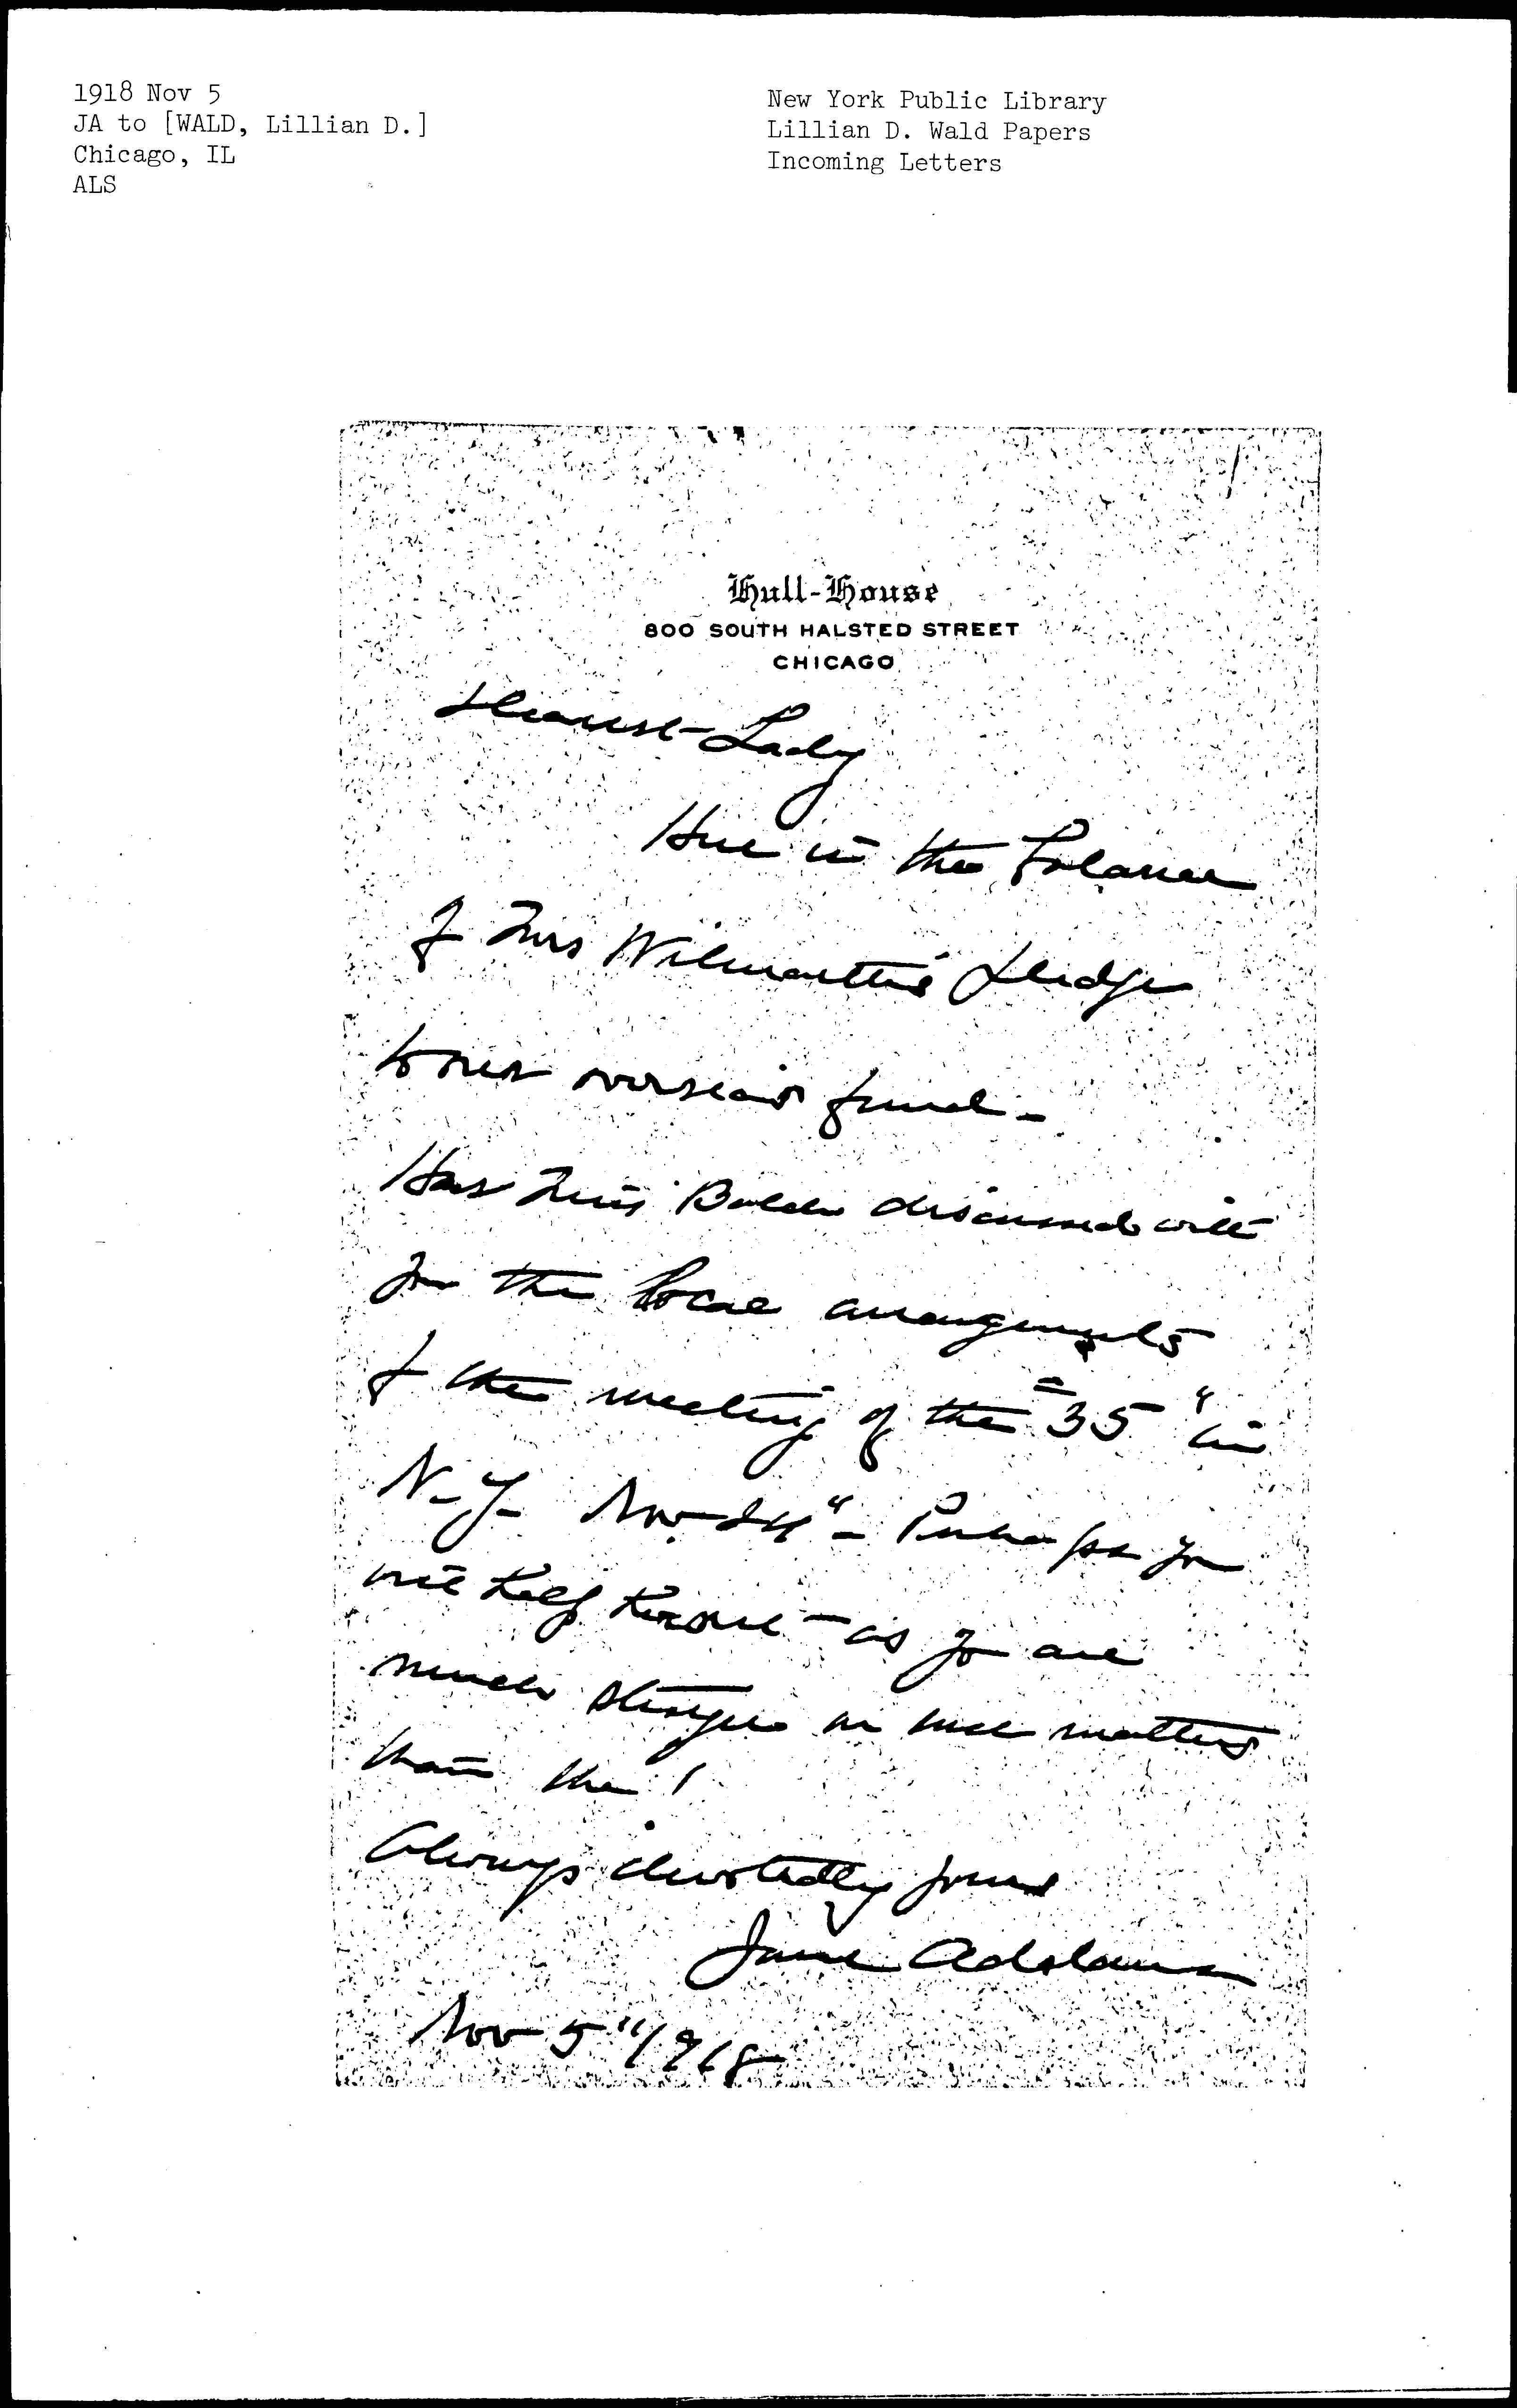 1918 Nov 5
JA to [WALD, Lillian D.]
Chicago, IL
ALS
New York Public Library
Lillian D. Wald Papers
Incoming Letters
Hull-House
800 SOUTH HALSTED STREET
CHICAGO
Dearest Lady
Here is the balance
of Mrs Wilmarth's pledge
to overseas fund -
Has Miss Balch discussed with
you the local arrangements
of the meeting of the "35" in
N.Y. Nov 24" - Perhaps you
will help as you are
much stronger in such matters
than she!
Always devotedly yours
Jane Addams
Nov 5" 1918